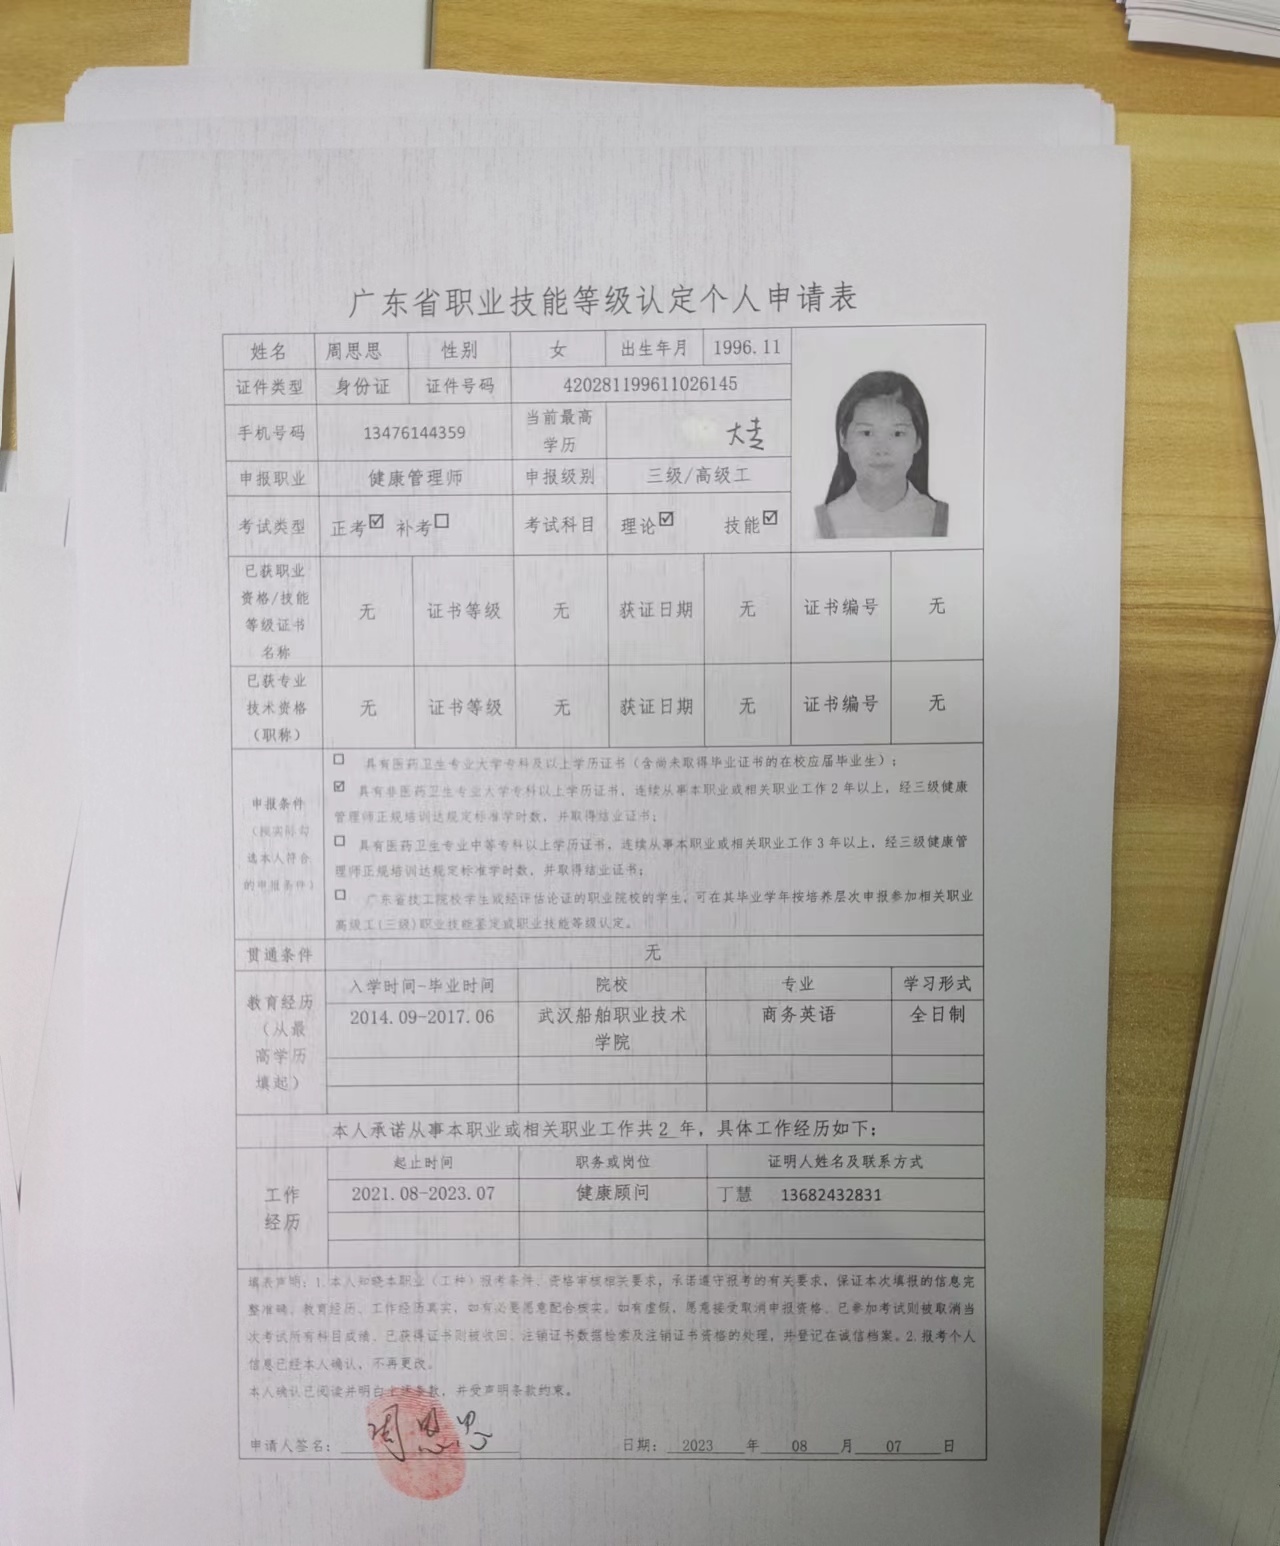 广东省职业技能等级认定个人申请表
姓名 周思思 性别 女 出生年月 1996.11
证件类型 身份证 证件号码 420281199611026145
手机号码 13476144359 当前最高学历 大专
申报职业 健康管理师 申报级别 三级/高级工
考试类型 正考☑ 补考☐ 考试科目 理论☑ 技能☑
已获职业资格/技能等级证书名称 无 证书等级 无 获证日期 无 证书编号 无
已获专业技术资格(职称) 无 证书等级 无 获证日期 无 证书编号 无
申报条件(按实际勾选本人符合的申报条件)
☐ 具有医药卫生专业大学专科及以上学历证书(含尚未取得毕业证书的在校应届毕业生);
☑ 具有非医药卫生专业大学专科以上学历证书,连续从事本职业或相关职业工作2年以上,经三级健康
管理师正规培训达规定标准学时数,并取得结业证书;
☐ 具有医药卫生专业中等专科以上学历证书,连续从事本职业或相关职业工作3年以上,经三级健康管
理师正规培训达规定标准学时数,并取得结业证书;
☐ 广东省技工院校学生或经评估论证的职业院校的学生,可在其毕业学年按培养层次申报参加相关职业
高级工(三级)职业技能鉴定或职业技能等级认定。
贯通条件 无
教育经历(从最高学历填起)
入学时间-毕业时间 院校 专业 学习形式
2014.09-2017.06 武汉船舶职业技术学院 商务英语 全日制
本人承诺从事本职业或相关职业工作共2年,具体工作经历如下:
工作经历
起止时间 职务或岗位 证明人姓名及联系方式
2021.08-2023.07 健康顾问 丁慧 13682432831
填表声明:1.本人知晓本职业(工种)报考条件、资格审核相关要求,承诺遵守报考的有关要求,保证本次填报的信息完
整准确、教育经历、工作经历真实,如有必要愿意配合核实。如有虚假,愿意接受取消申报资格、已参加考试则被取消当
次考试所有科目成绩、已获得证书则被收回、注销证书数据检索及注销证书资格的处理,并登记在诚信档案。2.报考个人
信息已经本人确认,不再更改。
本人确认已阅读并明白上述条款,并受声明条款约束。
申请人签名: 周思思 日期: 2023 年 08 月 07 日